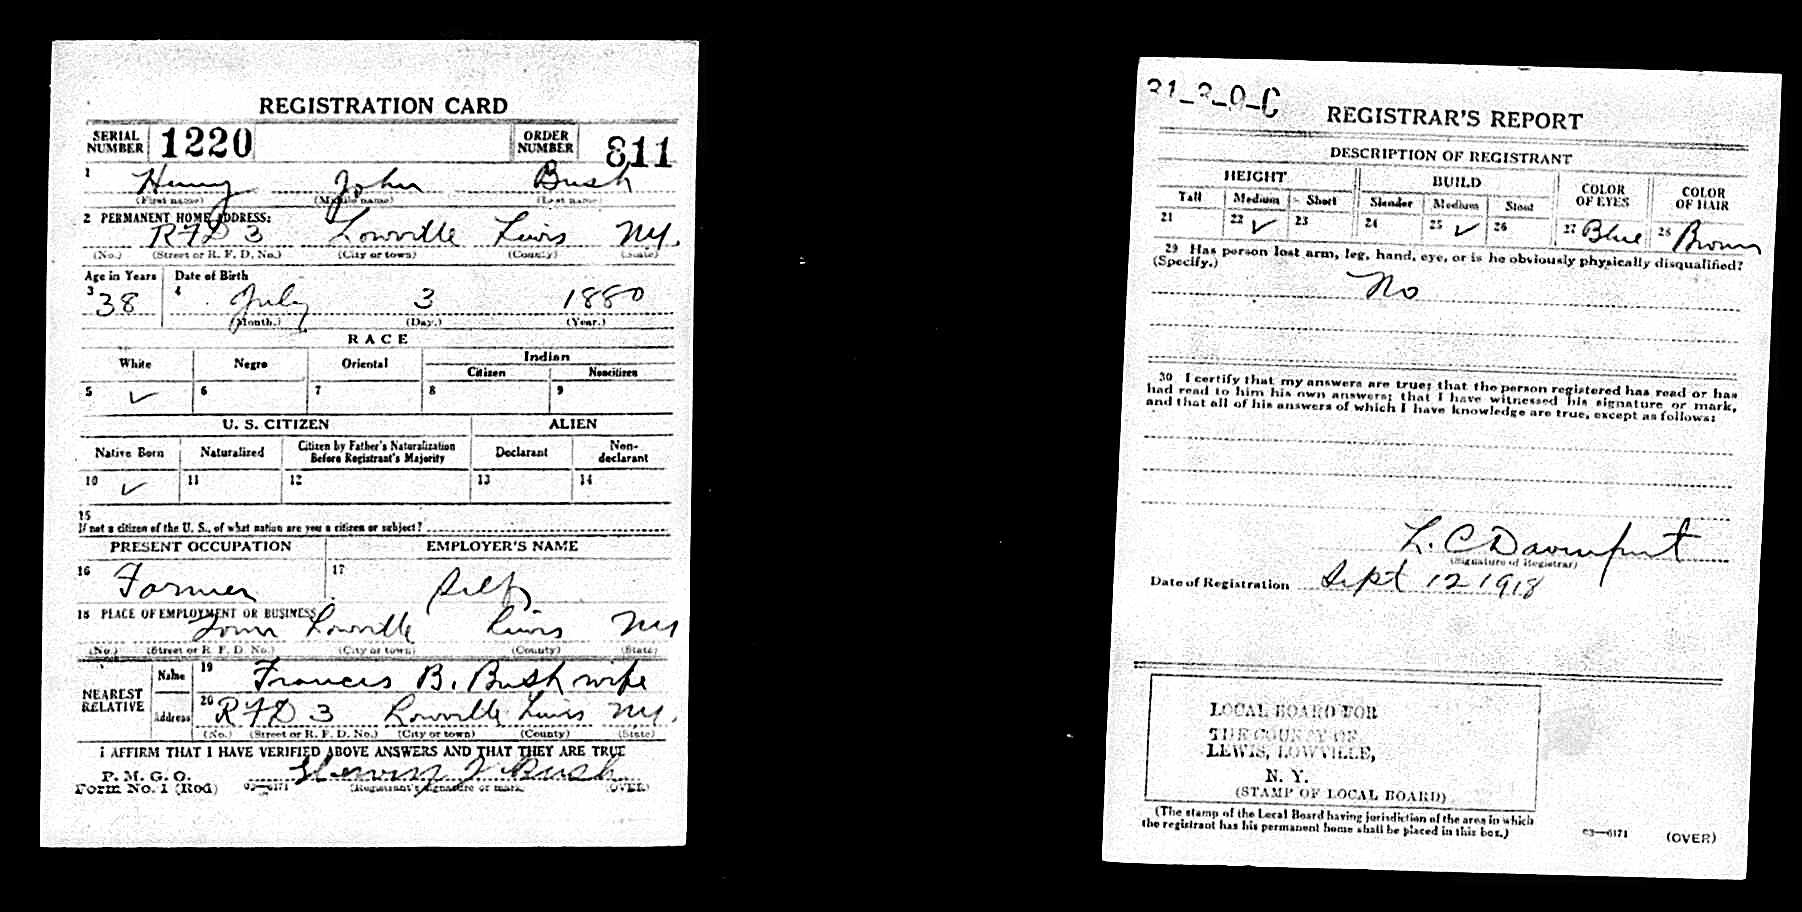 REGISTRATION CARD
SERIAL NUMBER 1220 ORDER NUMBER 811
1 Henry John Bush
(First name) (Middle name) (Last name)
2 PERMANENT HOME ADDRESS:
RFD 3 Lowville Lewis NY.
(No.) (Street or R. F. D. No.) (City or town) (County) (State)
Age in Years Date of Birth
3 38 4 July 3 1880
(Month.) (Day.) (Year.)
RACE
White Negro Oriental Indian
Citizen Noncitizen
5 ✓ 6 7 8 9
U. S. CITIZEN ALIEN
Native Born Naturalized Citizen by Father's Naturalization Before Registrant's Majority Declarant Non-declarant
10 ✓ 11 12 13 14
15
If not a citizen of the U. S., of what nation are you a citizen or subject?
PRESENT OCCUPATION EMPLOYER'S NAME
16 Farmer 17 Self
18 PLACE OF EMPLOYMENT OR BUSINESS
Town Lowville Lewis NY
(No.) (Street or R. F. D. No.) (City or town) (County) (State)
NEAREST RELATIVE
Name 19 Frances B. Bush wife
Address 20 RFD 3 Lowville Lewis NY.
(No.) (Street or R. F. D. No.) (City or town) (County) (State)
I AFFIRM THAT I HAVE VERIFIED ABOVE ANSWERS AND THAT THEY ARE TRUE
P. M. G. O.
Form No. 1 (Red) 03—6171 Henry J Bush
(Registrant's signature or mark) (OVER)
31-3-9-C
REGISTRAR'S REPORT
DESCRIPTION OF REGISTRANT
HEIGHT BUILD COLOR OF EYES COLOR OF HAIR
Tall Medium Short Slender Medium Stout
21 22 ✓ 23 24 25 ✓ 26 27 Blue 28 Brown
29 Has person lost arm, leg, hand, eye, or is he obviously physically disqualified?
(Specify.)
No
30 I certify that my answers are true; that the person registered has read or has
had read to him his own answers; that I have witnessed his signature or mark,
and that all of his answers of which I have knowledge are true, except as follows:
L. C Davenport
(Signature of Registrar)
Date of Registration Sept 12 1918
LOCAL BOARD FOR
THE COUNTY OF
LEWIS, LOWVILLE,
N. Y.
(STAMP OF LOCAL BOARD)
(The stamp of the Local Board having jurisdiction of the area in which
the registrant has his permanent home shall be placed in this box.)
03—6171 (OVER)